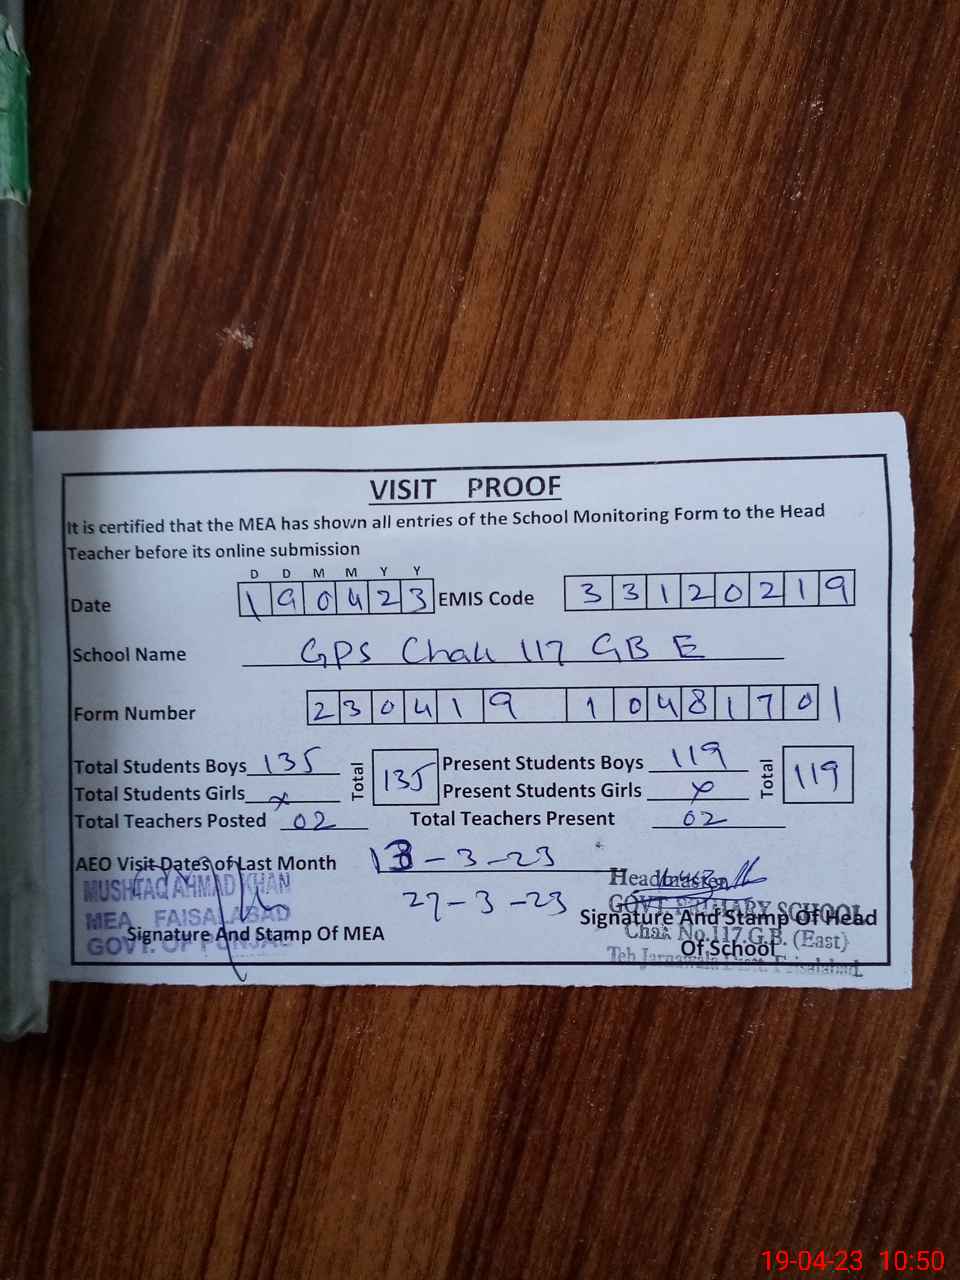 VISIT PROOF
It is certified that the MEA has shown all entries of the School Monitoring Form to the Head
Teacher before its online submission
D D M M Y Y
Date 190423 EMIS Code 33120219
School Name GPS Chak 117 GB E
Form Number 230419 1048170 1
Total Students Boys 135 Total 135 Present Students Boys 119 Total 119
Total Students Girls x Present Students Girls x
Total Teachers Posted 02 Total Teachers Present 02
AEO Visit Dates of Last Month 13-3-23
27-3-23
MUSHTAQ AHMAD KHAN
MEA FAISALABAD
GOVT. OF PUNJAB
Signature And Stamp Of MEA
Headmaster
GOVT. PRIMARY SCHOOL
Signature And Stamp Of Head
Chak No.117.G.B. (East)
Of School
Teh Jaranwala Distt. Faisalabad.
19-04-23 10:50